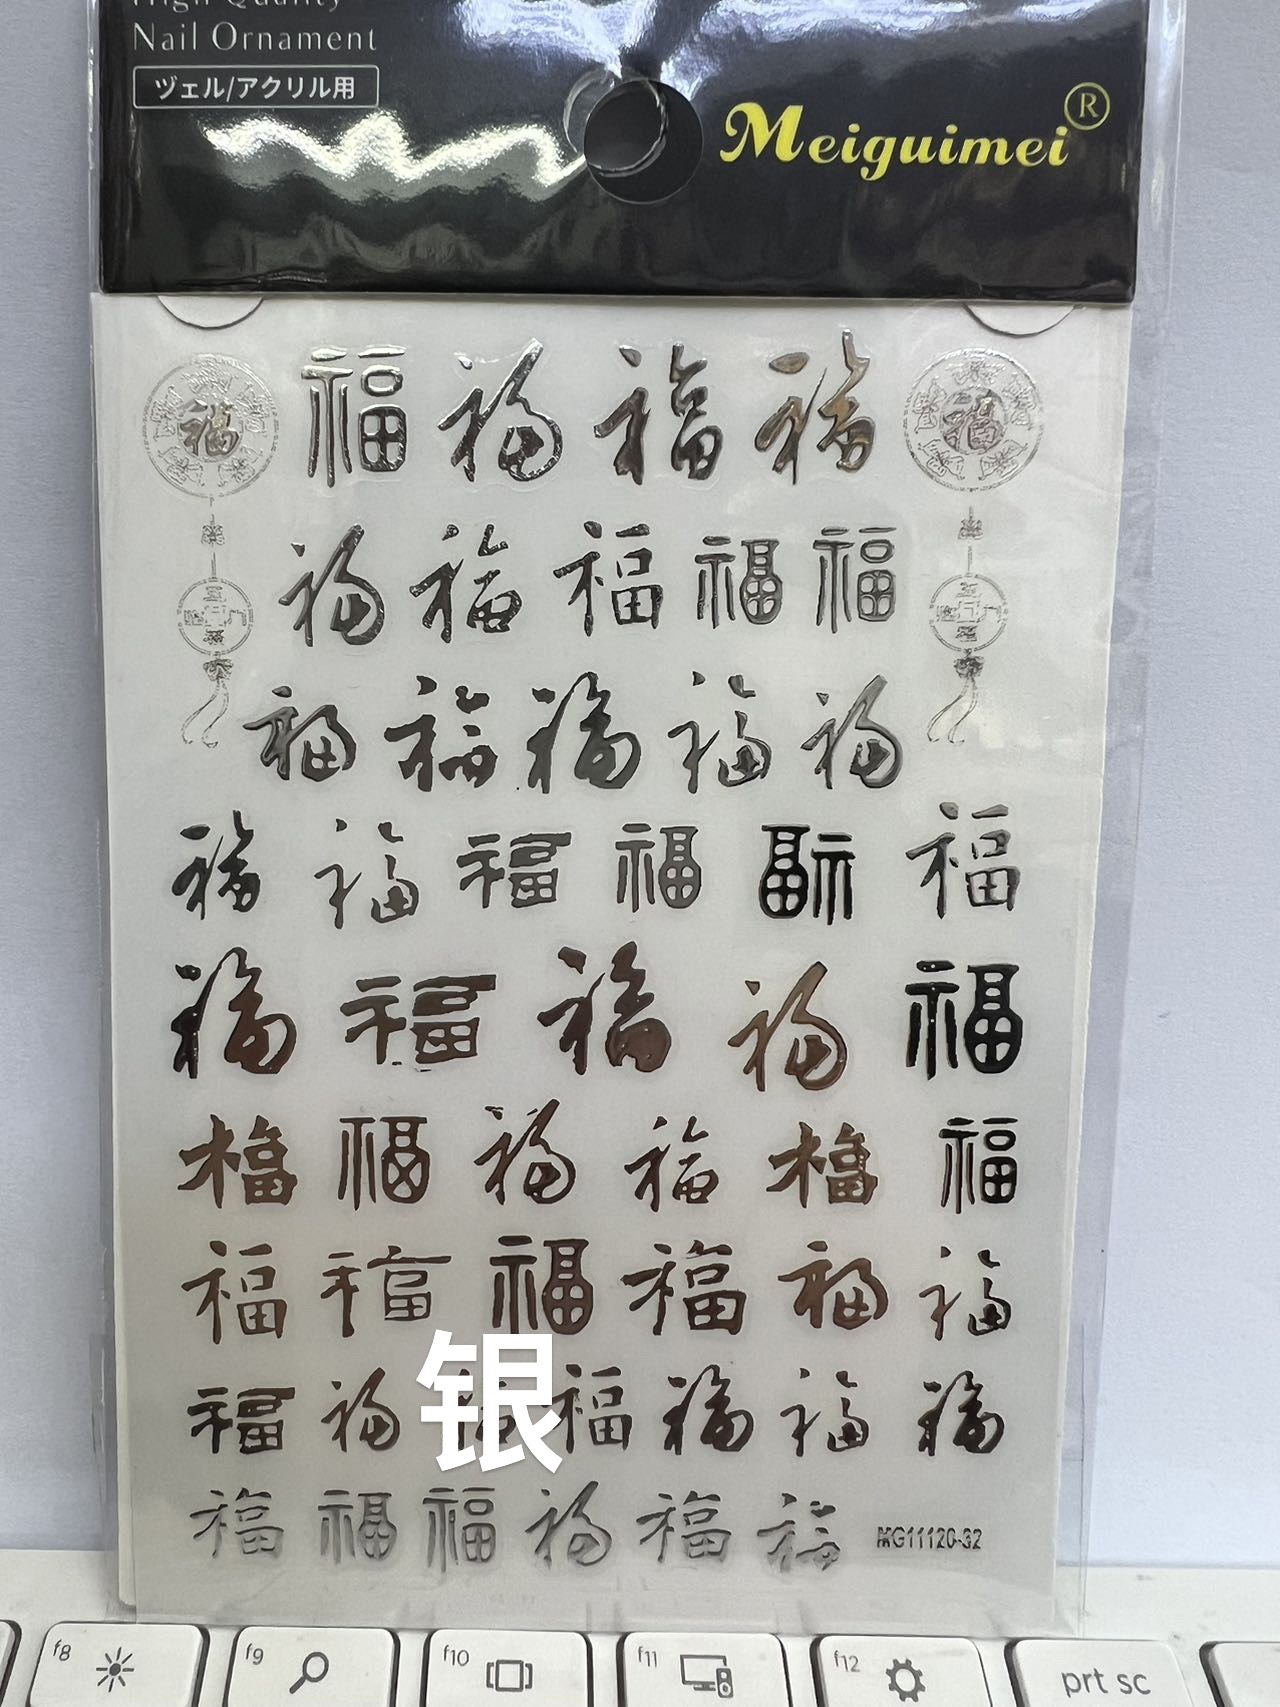 High Quality
Nail Ornament
ヅェル/アクリル用
Meiguimei®
福 福 福 福 福 福
福 福 福 福 福
福 福 福 福 福
福 福 福 福 福 福
福 福 福 福 福
福 福 福 福 福 福
福 福 福 福 福 福
福 福 福 福 福 福 福
银
福 福 福 福 福 福
MG11120-32
f8
f9
f10
f11
f12
prt sc